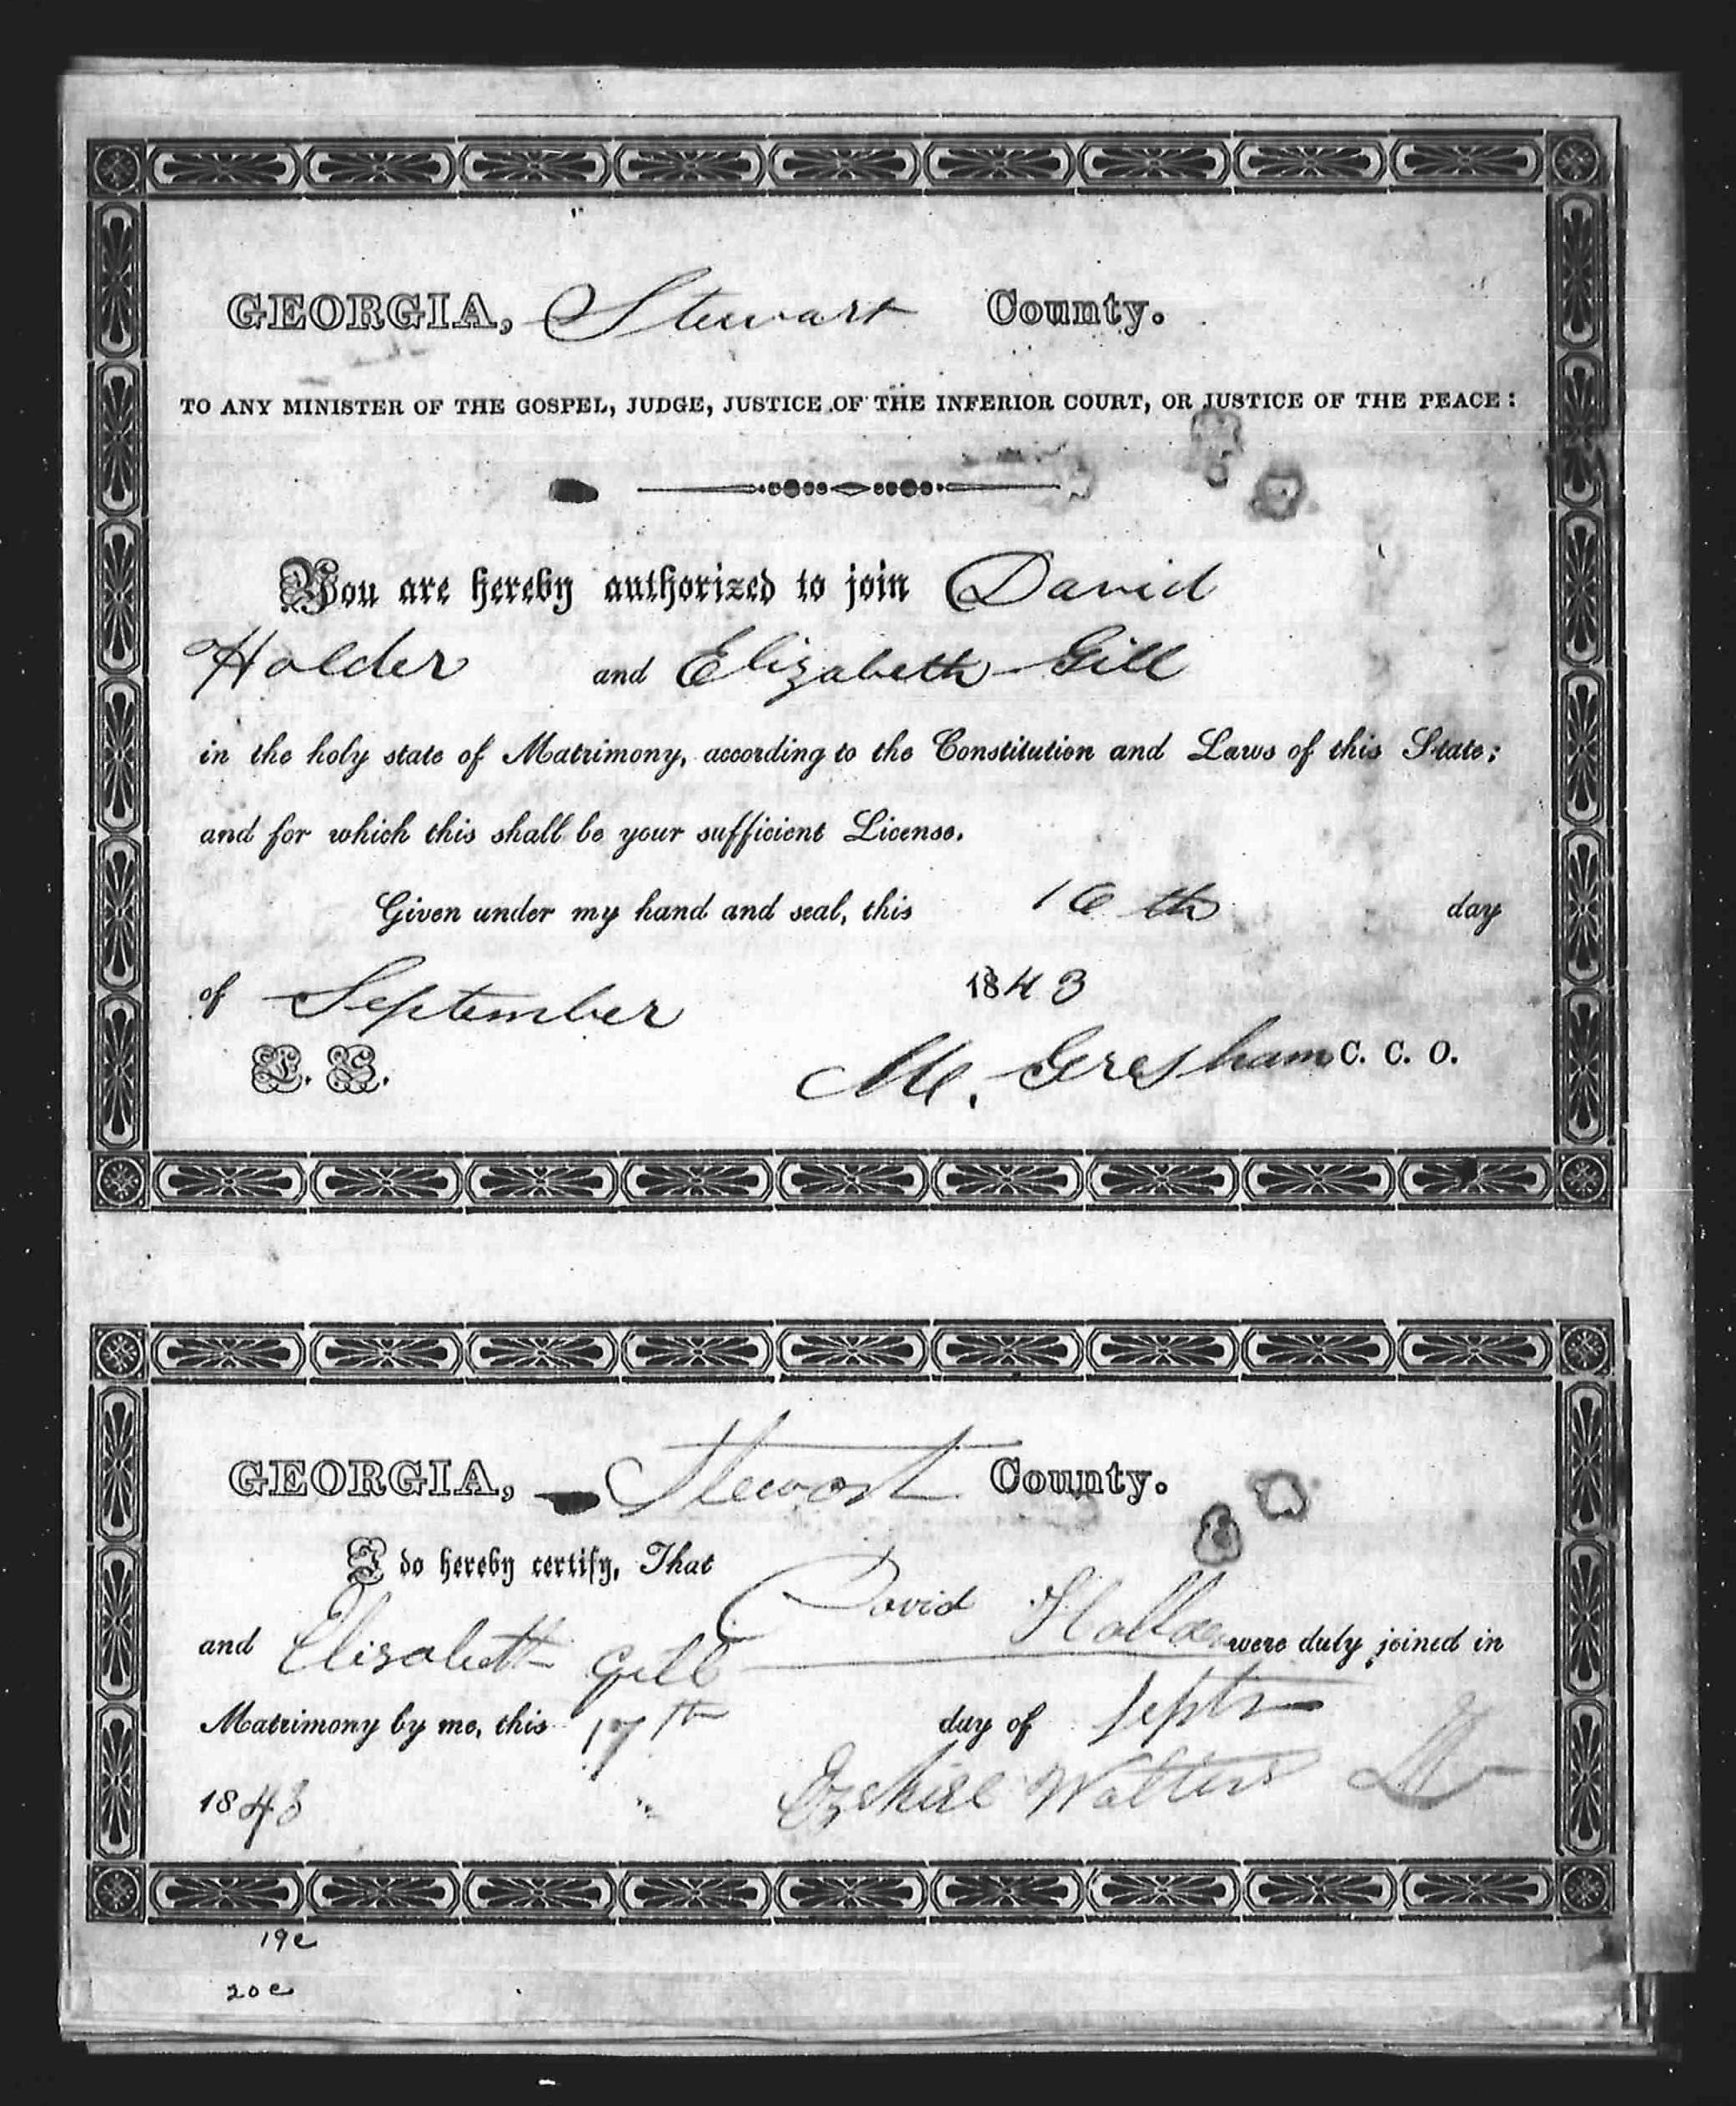 GEORGIA, Stewart County.
TO ANY MINISTER OF THE GOSPEL, JUDGE, JUSTICE OF THE INFERIOR COURT, OR JUSTICE OF THE PEACE:
You are hereby authorized to join David
Holder and Elizabeth Gill
in the holy state of Matrimony, according to the Constitution and Laws of this State;
and for which this shall be your sufficient License.
Given under my hand and seal, this 16th day
of September 1843
L. S. M. Gresham C. C. O.
GEORGIA, Stewart County.
I do hereby certify, That David
and Elisabeth Gill were duly joined in
Matrimony by me, this 17th day of Septr
1843 Ezekiel Walters
19e
20e